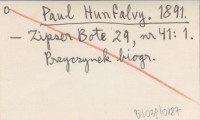 Paul Hunfalvy. 1891.
— Zipser Bote 29, nr 41: 1.
Przyczynek biogr.